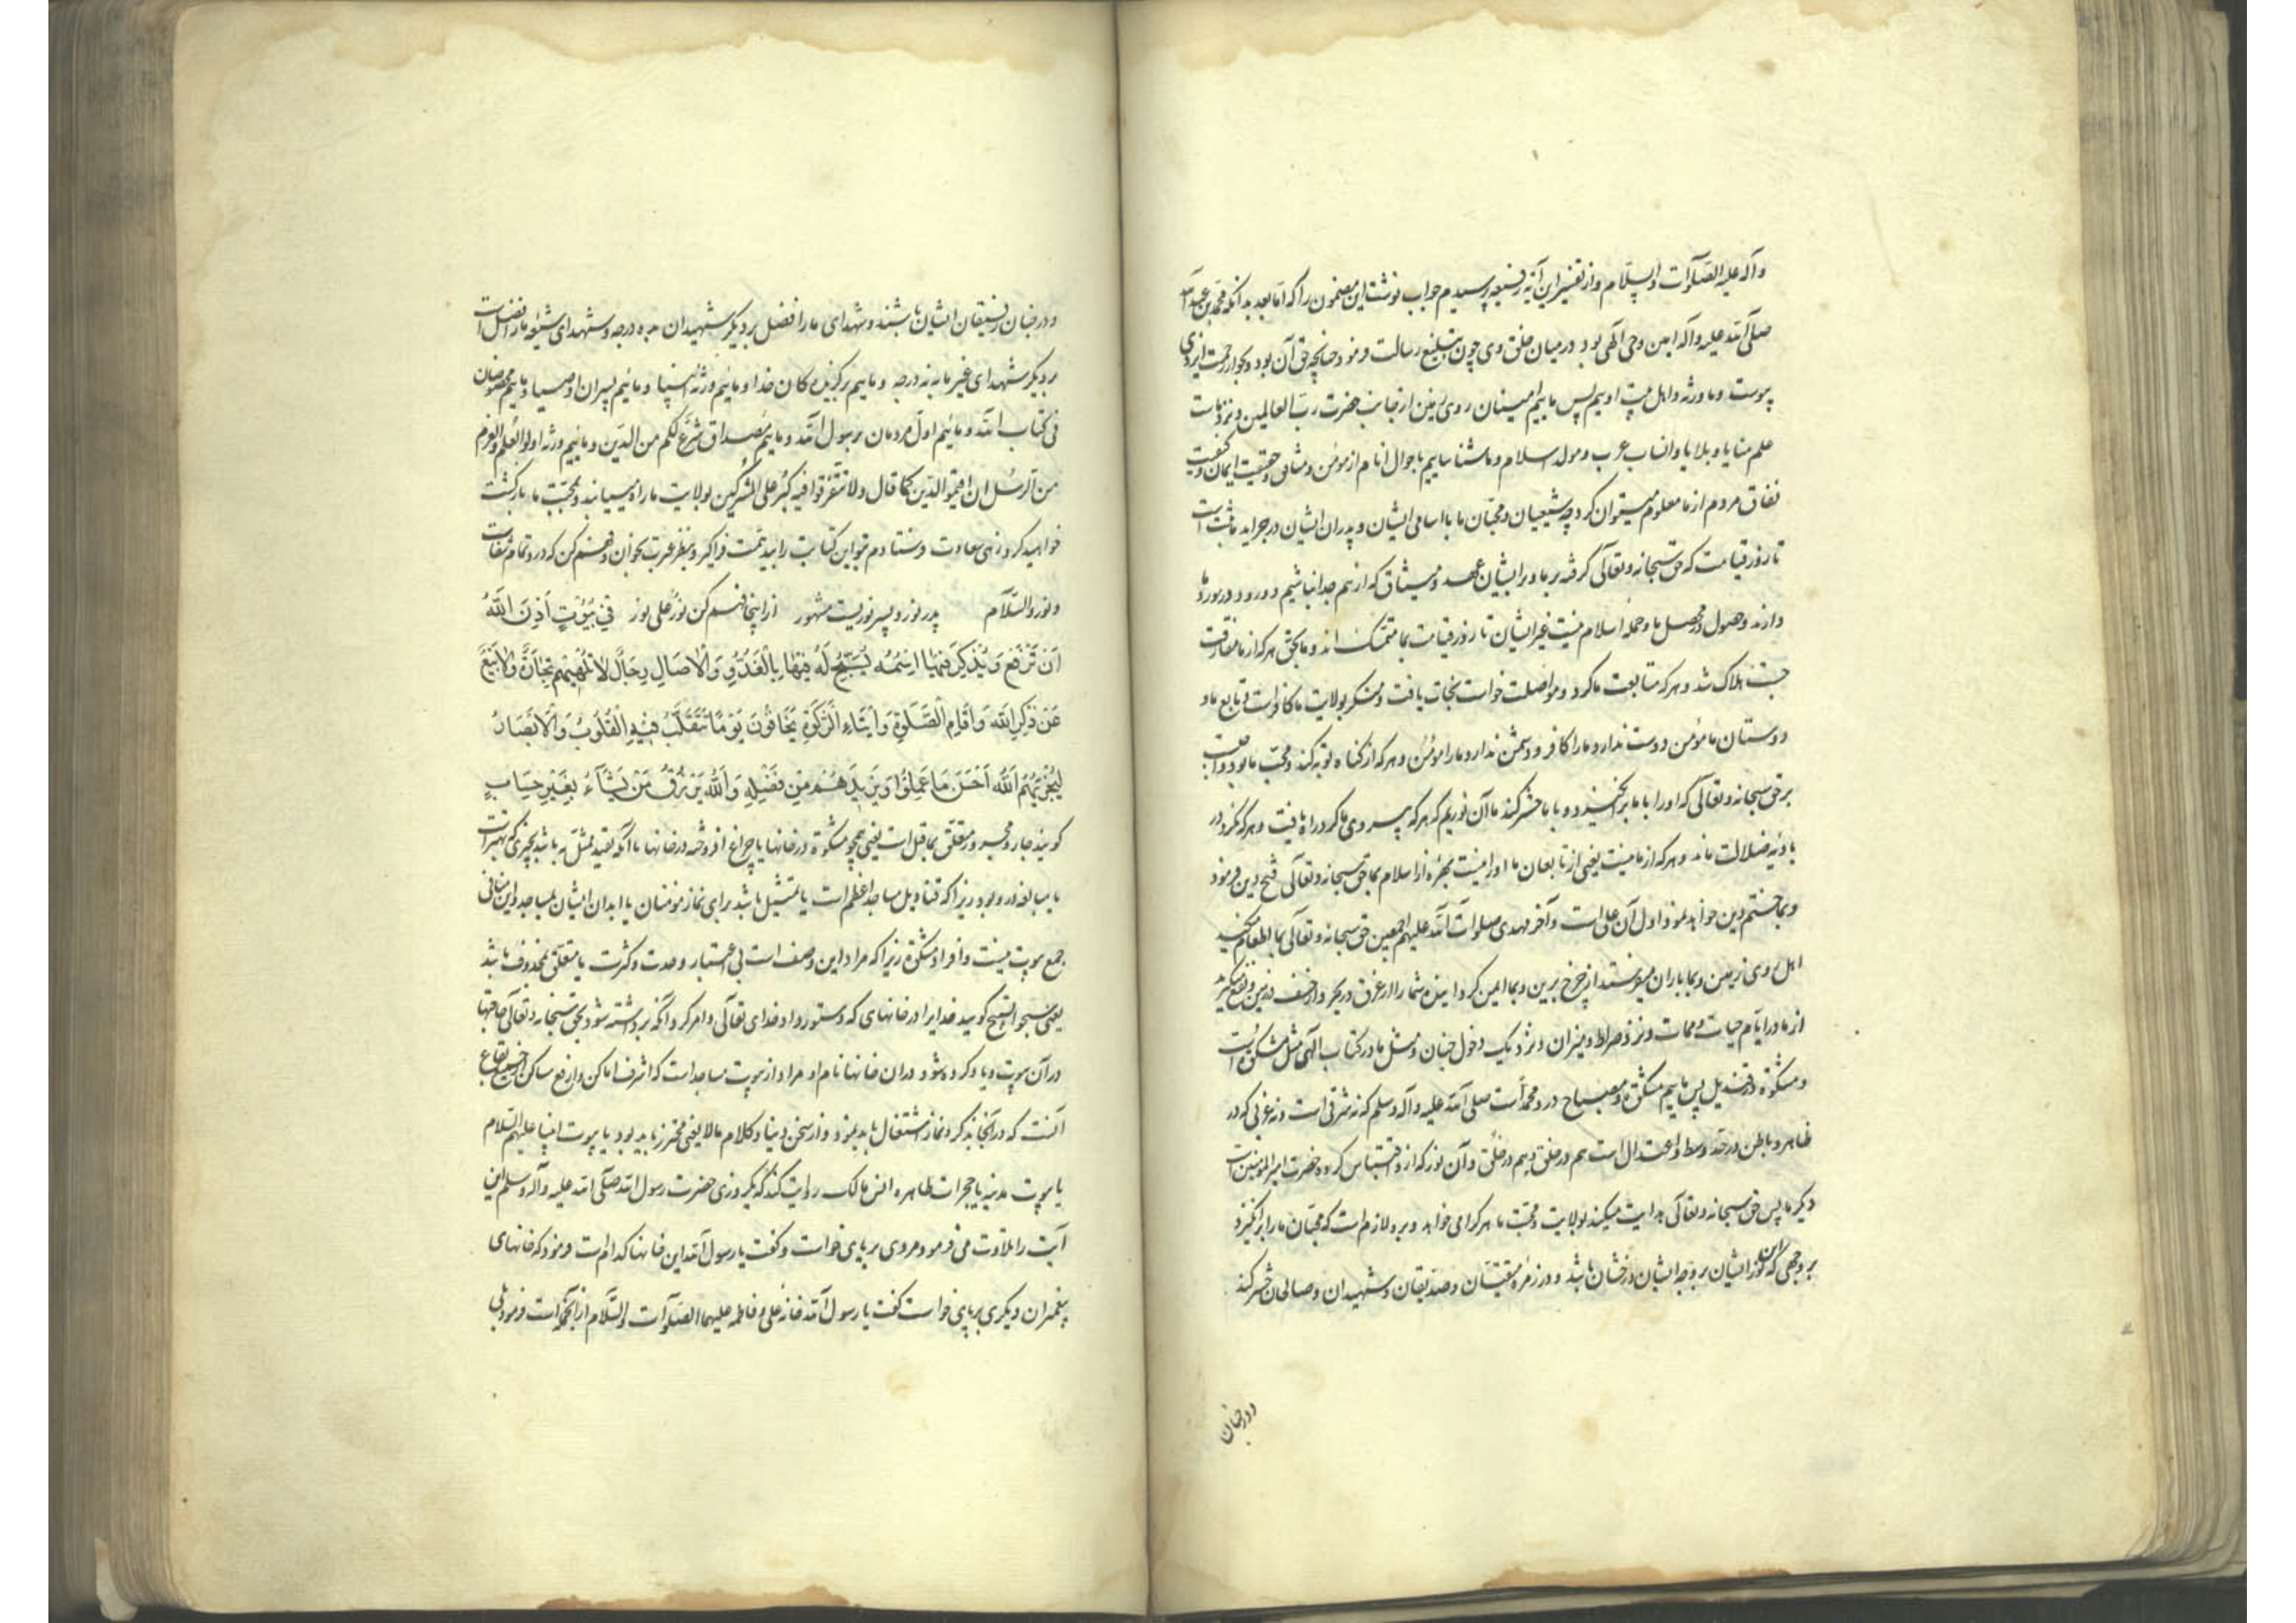 وآله علیه الصلوات والسلام واز تفسیر این آیهٔ رفیعه پرسیدم جواب نوشت این مضمون را که اما بعد بدانکه محمد بن عبدالله
صلی الله علیه وآله امین وحی الهی بود در میان خلق وی چون تبلیغ رسالت فرمود چنانچه حق آن بود و بجوار رحمت ایزدی
پیوست وما ورثه واهل بیت اویم پس ماییم امینان روی زمین از جانب حضرت رب العالمین ونزد ماست
علم منایا وبلایا وانساب عرب ومولد اسلام وما شناساییم باحوال انام از مؤمن ومنافق وحقیقت ایمان وکیفیت
نفاق مردم از ما معلوم میتوان کرد چه شیعیان ومحبان ما با اسامی ایشان وپدران ایشان در جراید ما ثبت است
تا روز قیامت که حق سبحانه وتعالی گرفته بر ما وبر ایشان عهد ومیثاق که از هم جدا نباشیم و درود در مورد ما
دارند وحصول در محصل ما وجمله اسلام نیست غیر ایشان تا روز قیامت بما متمسک‌اند وما بحق هر که از ما مفارقت
جست هلاک شد وهر که متابعت ما کرد ومواصلت خواست نجات یافت ومنکر بولایت ما کافر است و تابع ما و
دوستان ما مؤمن ودوست ندارد ما را کافر ودشمن ندارد ما را مؤمن وهر که از گناه توبه کند ومحب ما بود واجب است
بر حق سبحانه وتعالی که او را با ما برانگیزد و با ما حشر کند ما آن نوریم که هر که پیروی ما کرد راه یافت وهر که نکرد در
بادیهٔ ضلالت ماند وهر که از ما نیست یعنی از تابعان ما او را نیست بهرهٔ از اسلام بما حق سبحانه وتعالی فتح دین فرمود
وبما ختم دین خواهد نمود اول آن علی است وآخر مهدی صلوات الله علیهم اجمعین حق سبحانه وتعالی بما اطعام میکند
اهل روی زمین وبما باران میفرستد از چرخ برین وبما ایمن گردانیده شما را از غرق در بحر واز خسف در زمین ونفع میگیرید
از ما در ایام حیات وممات ونزد صراط ومیزان ونزدیک دخول جنان ومثل ما در کتاب الهی مثل مشکوة است
ومشکوة در قندیل پس ماییم مشکوة ومصباح در و محمد است صلی الله علیه وآله وسلم که نه شرقی است ونه غربی که در
ظاهر وباطن در حد وسط واعتدال است هم در خلق وهم در خُلق وآن نور که ازو اقتباس کرده حضرت امیرالمؤمنین است
دیگر ما پس حق سبحانه وتعالی هدایت میکند بولایت ومحبت ما هر کرا می خواهد وبرو لازم است که محبان ما را برانگیزد
بر وجهی که نور این ایشان بر وجه ایشان درخشان باشد و در زمرهٔ متقیان وصدیقان وشهیدان وصالحان حشر کند
ودر جنان
ودر جنان رفیقان ایشان باشند وشهدای ما را فضل بر دیگر شهیدان به ده درجه وشهدای شیعهٔ ما را فضل است
بر دیگر شهدای غیر ما به نه درجه وماییم برگزیده‌کان خدا وماییم ورثهٔ انبیا وماییم پسران اوصیا وماییم مخصوصان
فی کتاب الله وماییم اول مردمان برسول الله وماییم مصداق شرع لکم من الدین وماییم ورثه اولوا العلم والعزم
من الرسل ان اقیموا الدین کما قال ولا تتفرقوا فیه کبر علی المشرکین بولایت ما راه می‌یابند وبمحبت ما بازگشت
خواهید کرد زهی سعادت فرستادم بتو این کتابت را بیدِ همت فراگیر وبنظر عبرت بخوان وفهم کن که درو تمام شفاست
ونور والسلام پدر نور وپسر نوریست مشهور از اینجا فهم کن نور علی نور فِی بُیُوتٍ اَذِنَ اللهُ
اَنْ تُرْفَعَ وَیُذْکَرَ فِیهَا اسْمُهُ یُسَبِّحُ لَهُ فِیهَا بِالْغُدُوِّ وَالْاٰصَالِ رِجَالٌ لَا تُلْهِیهِمْ تِجَارَةٌ وَلَا بَیْعٌ
عَنْ ذِکْرِ اللهِ وَاِقَامِ الصَّلٰوةِ وَاِیتَاءِ الزَّکٰوةِ یَخَافُونَ یَوْمًا تَتَقَلَّبُ فِیهِ الْقُلُوبُ وَالْاَبْصَارُ
لِیَجْزِیَهُمُ اللهُ اَحْسَنَ مَا عَمِلُوا وَیَزِیدَهُمْ مِنْ فَضْلِهِ وَاللهُ یَرْزُقُ مَنْ یَشَاءُ بِغَیْرِ حِسَابٍ
گویند جار ومجرور متعلق بماقبل است یعنی همچو مشکوة در خانها یا چراغ افروخته در خانها با آنکه تقیید ممثل به باشد بچیزی که بهتر است
با مبالغه درو بود زیرا که قنادیل مساجد اعظم است یا تمثیل باشد برای نماز مؤمنان یا ابدان ایشان بمساجد واین منافی
جمع بیوت نیست وافراد مشکوة زیرا که مراد این وصف است بی اعتبار وحدت وکثرت یا متعلق بمحذوف باشد
یعنی سبحوا تسبیح گویید خدایرا در خانهای که دستور داد خدای تعالی وامر کرد آنکه برداشته شود بحق سبحانه وتعالی حاجتها
در آن بیوت ویاد کرده شود در ان خانها نام او مراد از بیوت مساجد است که اشرف اماکن وارفع مساکن بقاع
آنست که در آنجا بذکر ونماز اشتغال باید نمود واز سخن دنیا وکلام مالا یعنی محترز باید بود یا بیوت انبیا علیهم السلام
یا بیوت مدینه یا حجرات طاهره انس مالک روایت کند که یکروزی حضرت رسول الله صلی الله علیه وآله وسلم این
آیت را تلاوت می فرمود مردی بر پای خواست وگفت یا رسول الله این خانها کدام است فرمود که خانهای
پیغمبران دیگری بر پای خواست گفت یا رسول الله خانهٔ علی وفاطمه علیهما الصلوات والسلام از آنجمله است فرمود بلی